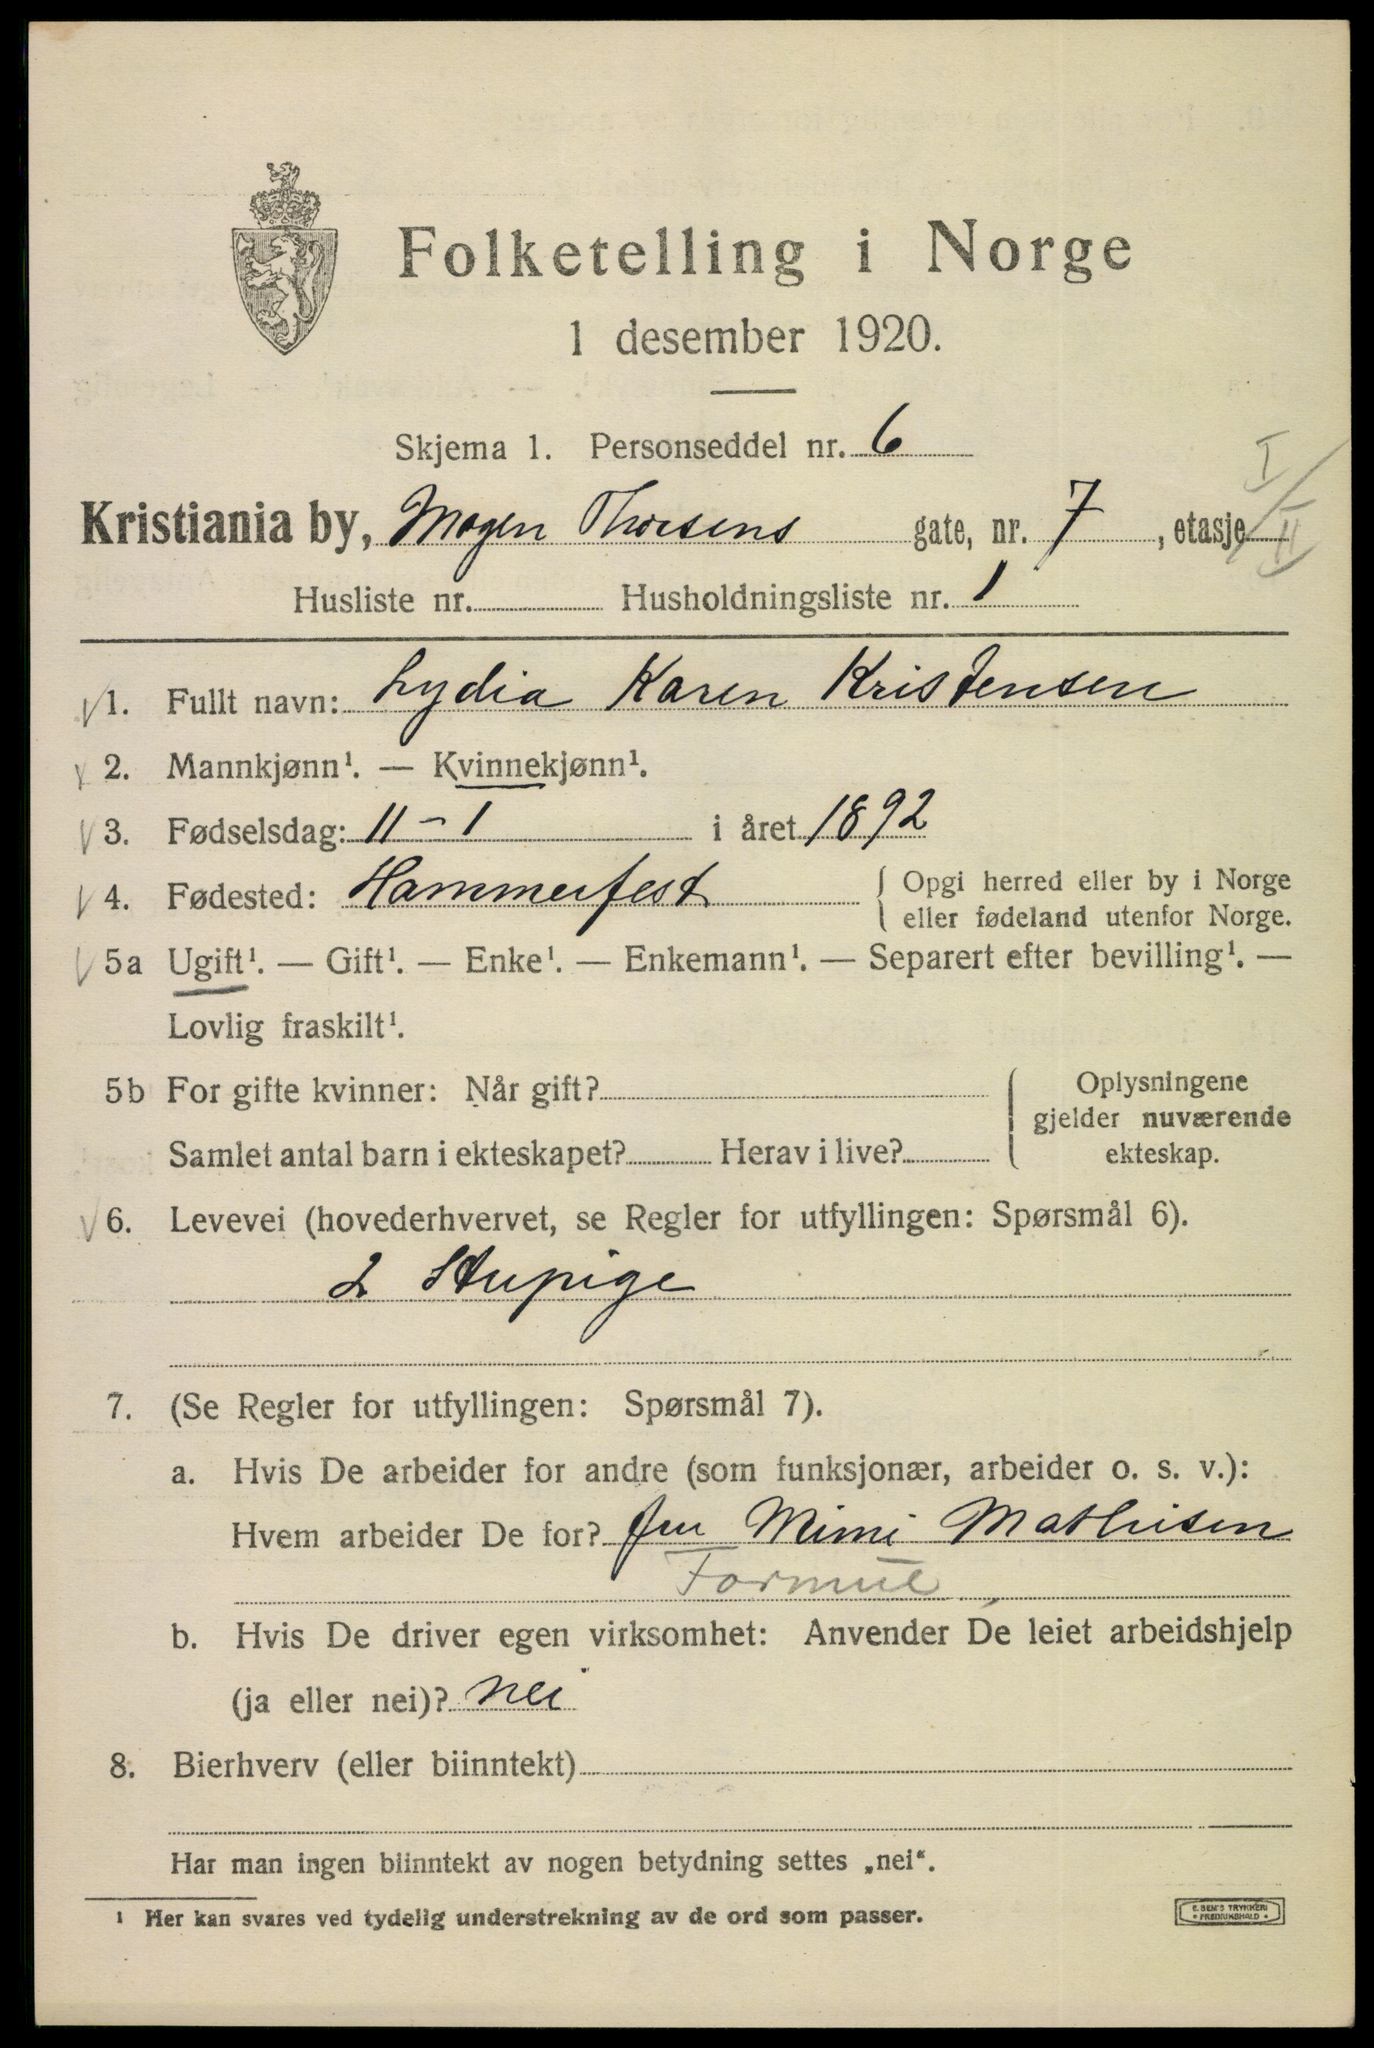 Folketelling i Norge
1 desember 1920.
Skjema 1. Personseddel nr. 6
Kristiania by, Mogen Thorsens gate, nr. 7, etasje I/II
Husliste nr. Husholdningsliste nr. 1
1. Fullt navn: Lydia Karen Kristensen
2. Mannkjønn¹. — Kvinnekjønn¹.
3. Fødselsdag: 11-1 i året 1892
4. Fødested: Hammerfest { Opgi herred eller by i Norge
eller fødeland utenfor Norge.
5a Ugift¹. — Gift¹. — Enke¹. — Enkemann¹. — Separert efter bevilling¹. —
Lovlig fraskilt¹.
5b For gifte kvinner: Når gift?
Samlet antal barn i ekteskapet? Herav i live?
Oplysningene
gjelder nuværende
ekteskap.
6. Levevei (hovederhvervet, se Regler for utfyllingen: Spørsmål 6).
2 Stupige
7. (Se Regler for utfyllingen: Spørsmål 7).
a. Hvis De arbeider for andre (som funksjonær, arbeider o. s. v.):
Hvem arbeider De for? Fru Mimi Mathisen
b. Hvis De driver egen virksomhet: Anvender De leiet arbeidshjelp
(ja eller nei)? nei
8. Bierhverv (eller biinntekt)
Har man ingen biinntekt av nogen betydning settes „nei“.
¹ Her kan svares ved tydelig understrekning av de ord som passer.
E. SEM'S TRYKKERI
• FREDRIKSHALD •